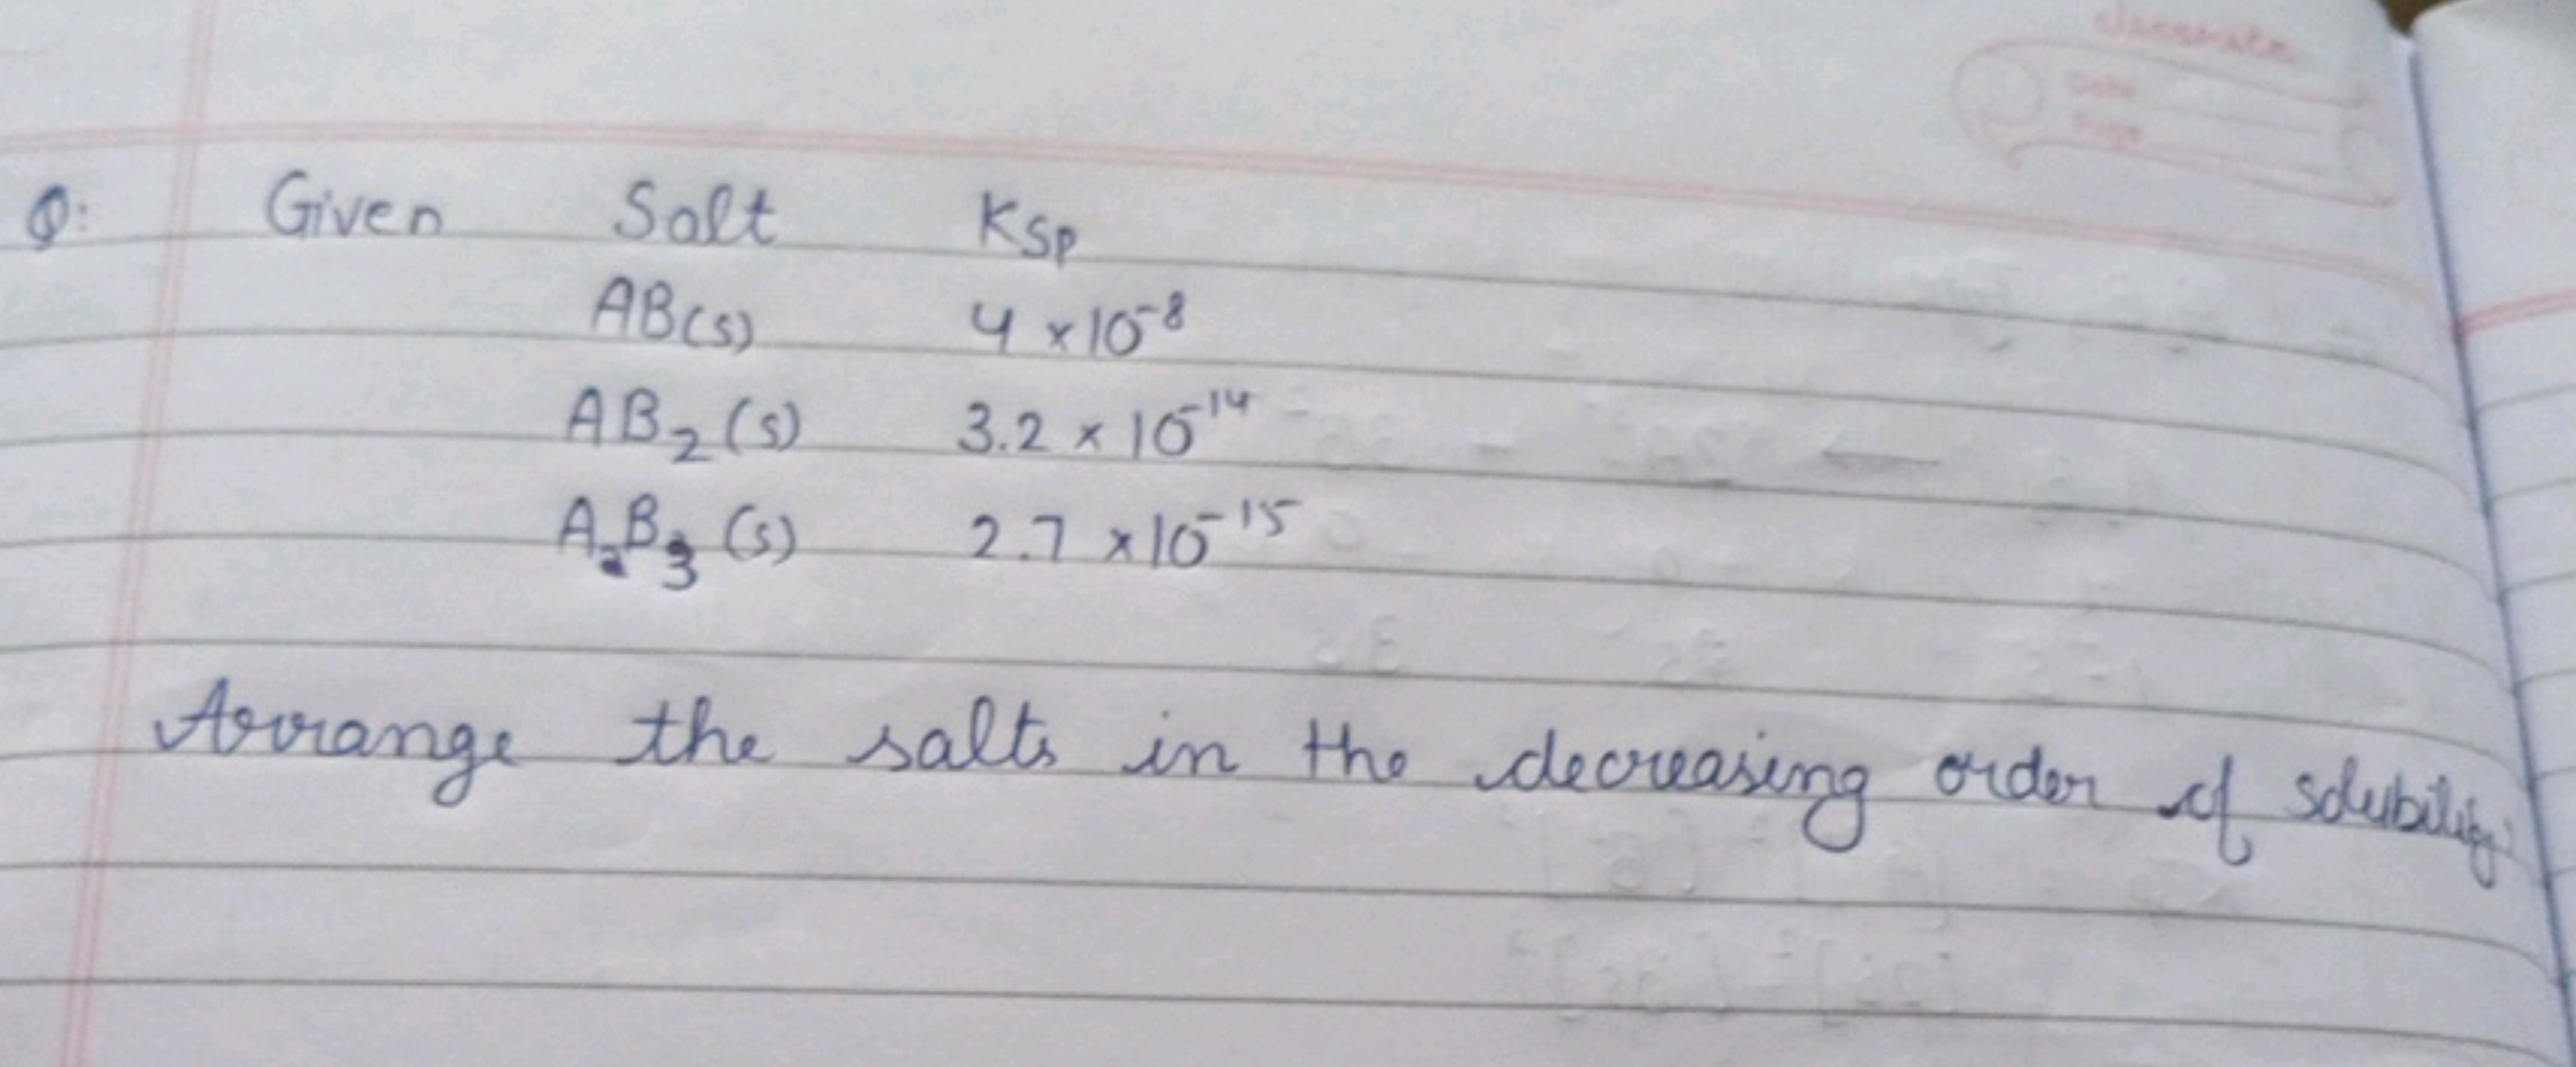 Q: Given Salt Ksp
AB(s) 4 × 10⁻⁸
AB₂ (s) 3.2 × 10⁻¹⁴
A₂B₃ (s) 2.7 × 10⁻¹⁵
Arrange the salts in the decreasing order of solubility
classmate
Date
Page